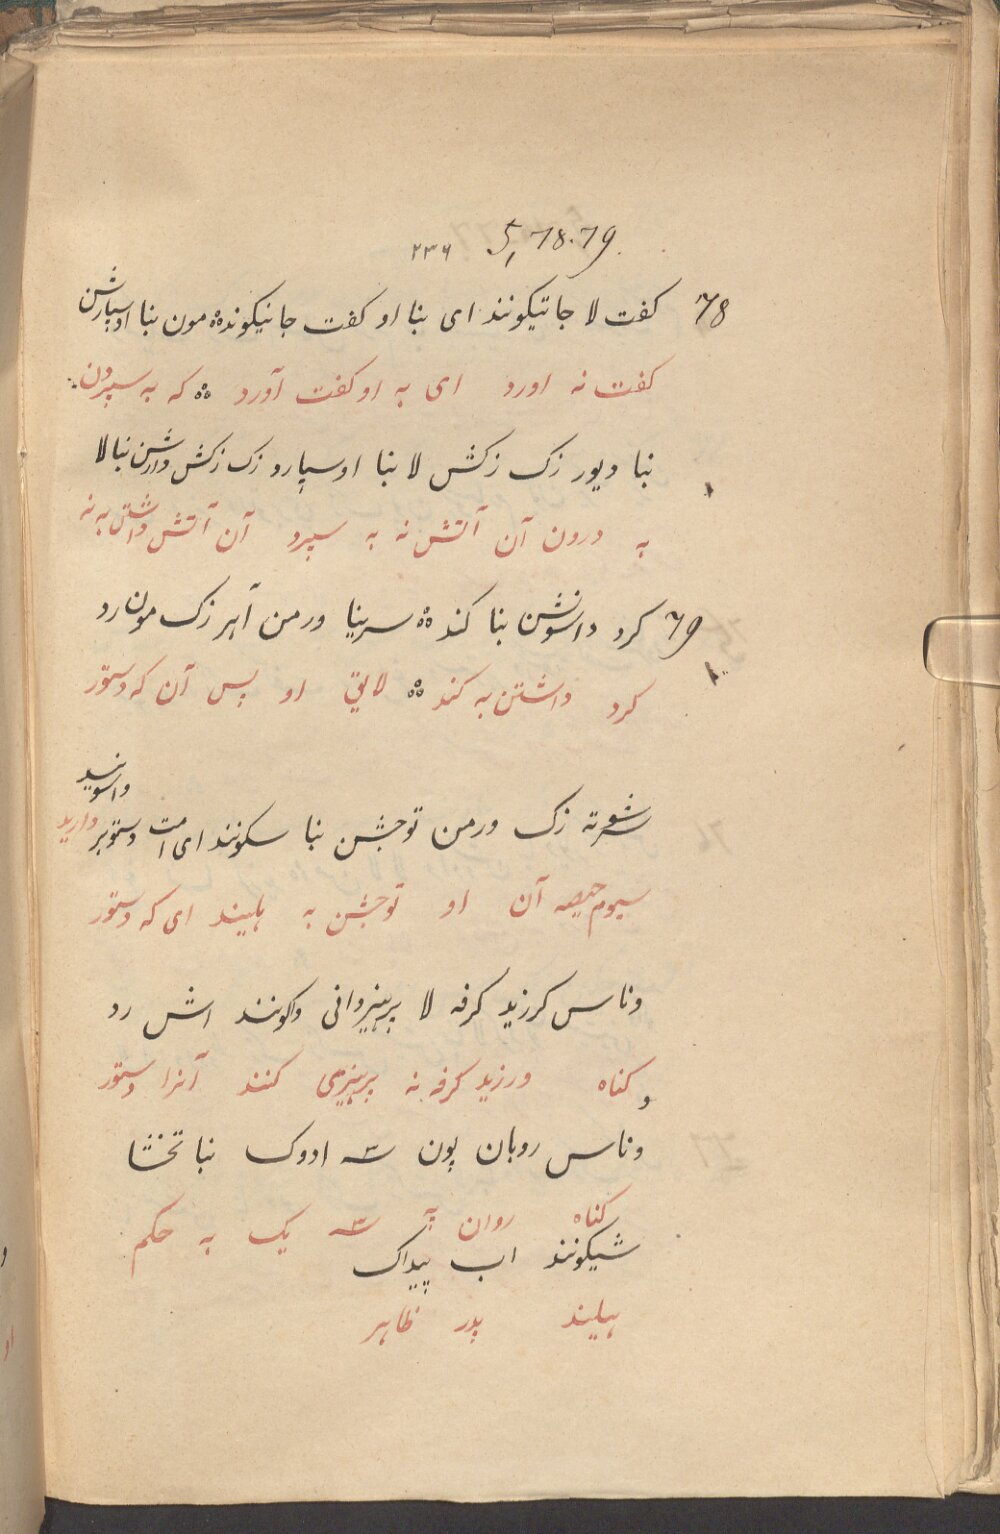 ۲۳۶ 5, 78.79.
78 کفت لا جاتیکونند ای بنا او کفت جاتیکونده مون بنا اوسپارشن
کفت نه اورد ای به او کفت آورد که به سپردن
بنا دیور زک زکش لا بنا اوسپارد زک زکش دارشن بنا لا
به درون آن آتش نه به سپرد آن آتش داشتن به نه
79 کرد داسوشن بنا کند سرینا ورمن آبر زک مون رد
کرد داشتن به کند لایق او پس آن که دستور
داسونید
زک ورمن توجشن بنا سکونند ای امت دستوبر دارید
سیوم حیصه آن او توجشن به هلیند ای که دستور
وناس کرزید کرفه لا پرهیزوانی واکونند اش رد
و کناه ورزید کرفه نه پرهیزمی کنند آنرا دستور
وناس روبان پون ۳ ادوک بنا تخشا
کناه روان په ۳ یک به حکم
شیکونند اب پیداک
هلیند پدر ظاهر